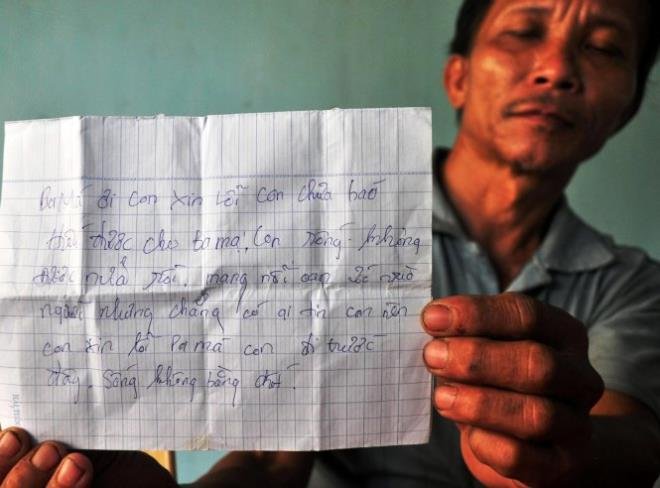 Ba má ơi con xin lỗi con chưa báo
hiếu được cho ba má. Con sống không
được nữa rồi. mang nỗi oan ức vào
người nhưng chẳng có ai tin con nên
con xin lỗi ba má con đi trước
đây. Sống không bằng chết.